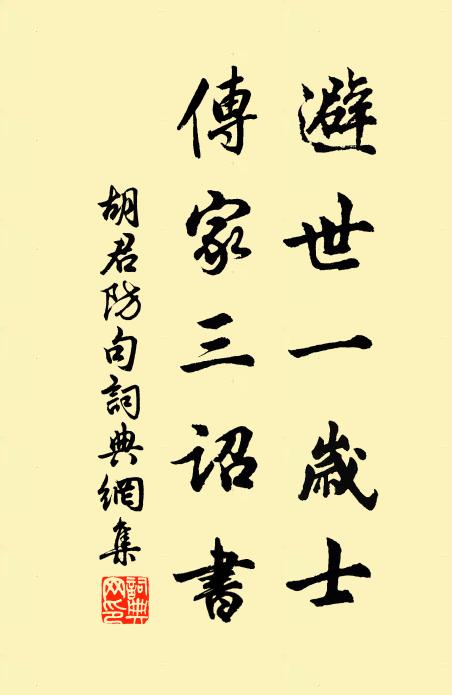 避世一歲士
傳家三詔書
胡君防句詞典網集
詞典網印